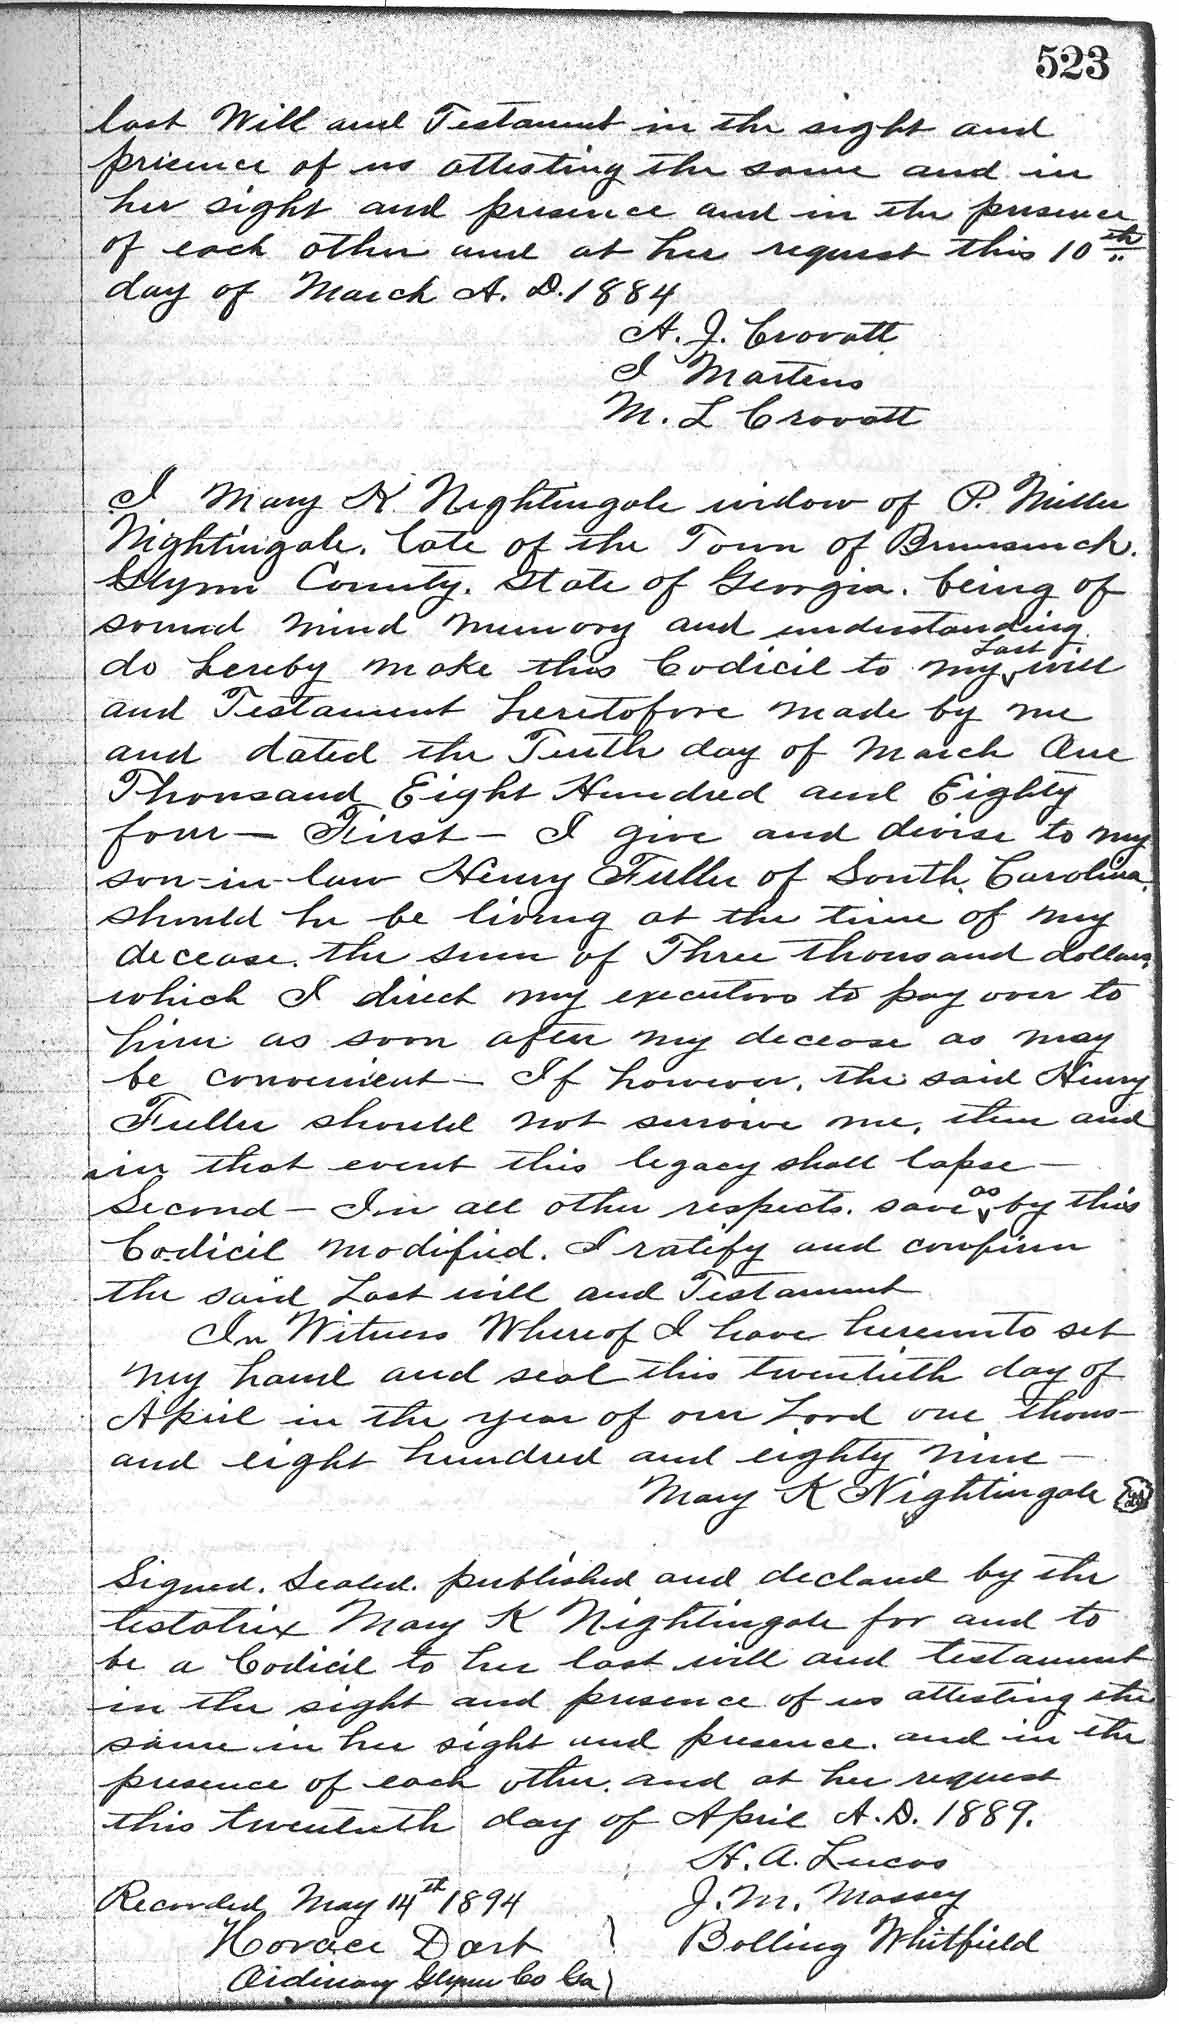 523
last Will and Testament in the sight and
presence of us attesting the same and in
her sight and presence and in the presence
of each other and at her request this 10th
day of March A. D. 1884
A. J. Crovatt
I Martens
M. L Crovatt
I Mary K Nightingale widow of P. Miller
Nightingale. late of the Town of Brunswick.
Glynn County. State of Georgia. being of
sound mind memory and understanding.
do hereby make this Codicil to my Last will
and Testament heretofore made by me
and dated the Tenth day of March One
Thousand Eight Hundred and Eighty
four — First — I give and devise to my
son-in-law Henry Fuller of South Carolina.
should he be living at the time of my
decease. the sum of Three thousand dollars,
which I direct my executors to pay over to
him as soon after my decease as may
be convenient — If however, the said Henry
Fuller should not survive me, then and
in that event this legacy shall lapse —
Second — In all other respects. save as by this
Codicil modified. I ratify and confirm
the said Last will and Testament
In Witness Whereof I have hereunto set
my hand and seal this twentieth day of
April in the year of our Lord one thous-
and eight hundred and eighty nine —
Mary K Nightingale
Signed. Sealed. published and declared by the
testatrix Mary K Nightingale for and to
be a Codicil to her last will and testament
in the sight and presence of us attesting the
same in her sight and presence. and in the
presence of each other. and at her request
this twentieth day of April A.D. 1889.
H. A. Lucas
Recorded May 14th 1894 J. M. Massey
Horace Dart ) Bolling Whitfield
Ordinary Glynn Co Ga )